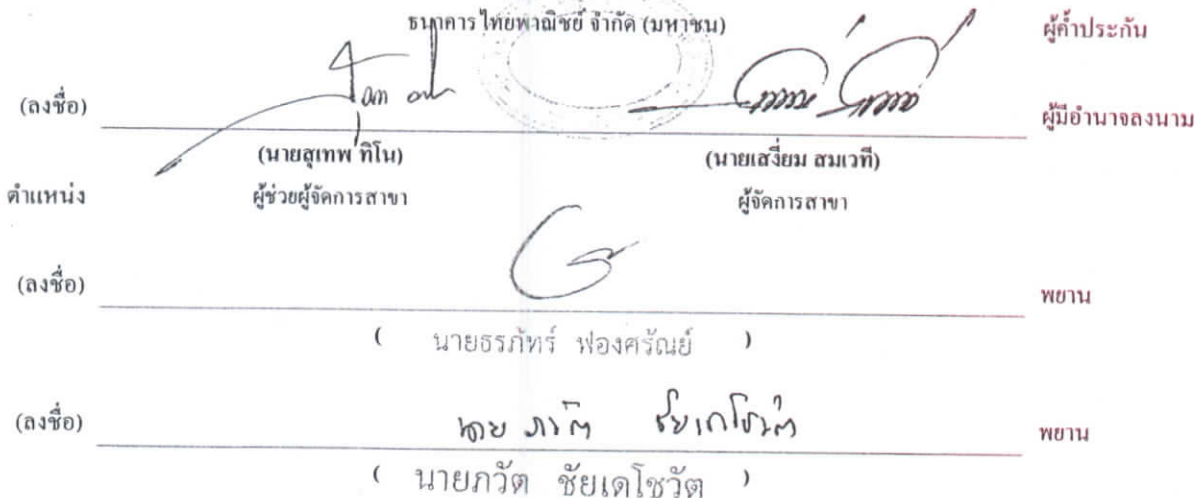 ธนาคารไทยพาณิชย์ จำกัด (มหาชน) ผู้ค้ำประกัน
(ลงชื่อ) ผู้มีอำนาจลงนาม
(นายสุเทพ ทิโน) (นายเสงี่ยม สมเวที)
ตำแหน่ง ผู้ช่วยผู้จัดการสาขา ผู้จัดการสาขา
(ลงชื่อ) พยาน
( นายธรภัทร์ ฟองศรัณย์ )
(ลงชื่อ) นาย ภวัต ชัยเดโชวัต พยาน
( นายภวัต ชัยเดโชวัต )